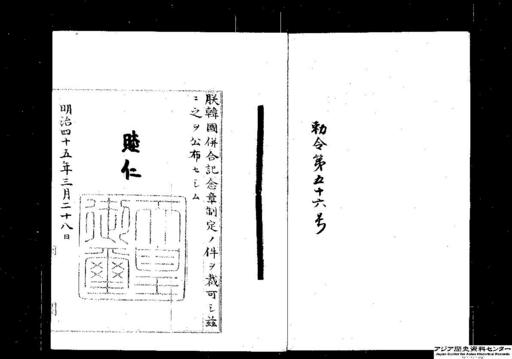 勅令第五十六号
朕韓國併合記念章制定ノ件ヲ裁可シ茲
ニ之ヲ公布セシム
睦仁
天皇御璽
明治四十五年三月二十八日
アジア歴史資料センター
Japan Center for Asian Historical Records